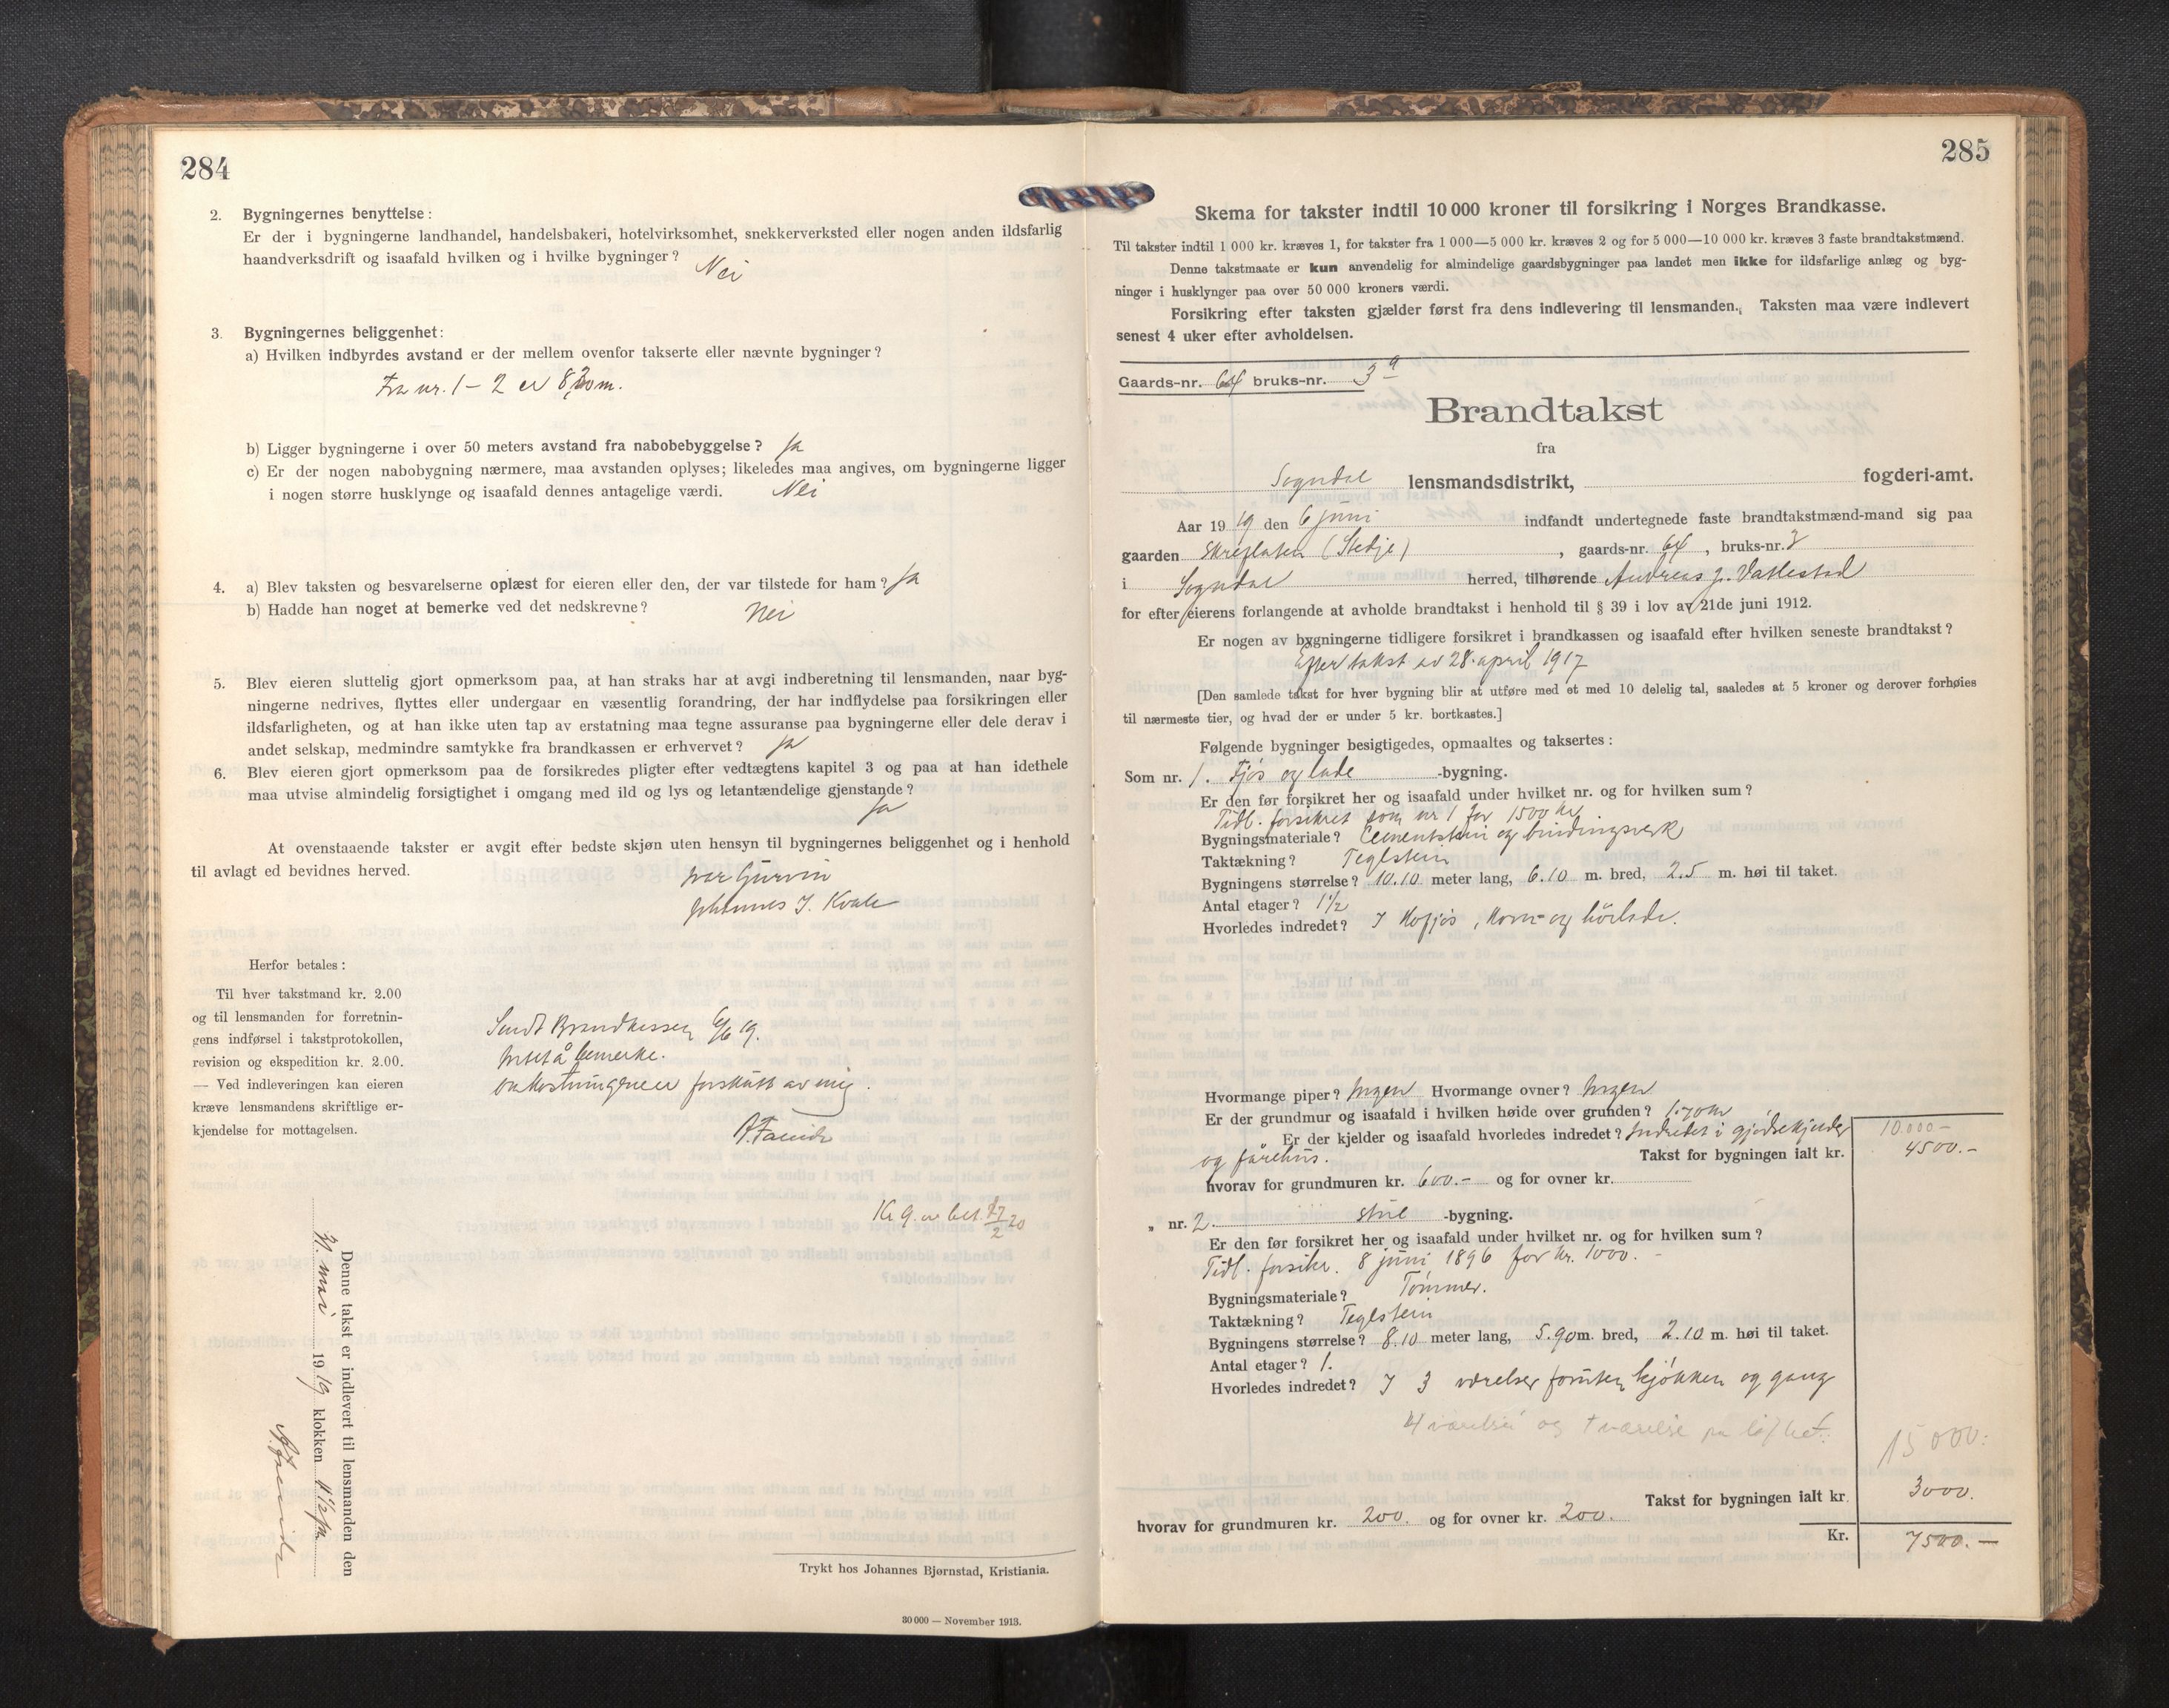 284
2. Bygningernes benyttelse:
Er der i bygningerne landhandel, handelsbakeri, hotelvirksomhet, snekkerverksted eller nogen anden ildsfarlig
haandverksdrift og isaafald hvilken og i hvilke bygninger? Nei
3. Bygningernes beliggenhet:
a) Hvilken indbyrdes avstand er der mellem ovenfor takserte eller nævnte bygninger?
Fra nr. 1 - 2 er m.
b) Ligger bygningerne i over 50 meters avstand fra nabobebyggelse? Ja
c) Er der nogen nabobygning nærmere, maa avstanden oplyses; likeledes maa angives, om bygningerne ligger
i nogen større husklynge og isaafald dennes antagelige værdi. Nei
4. a) Blev taksten og besvarelserne oplæst for eieren eller den, der var tilstede for ham? Ja
b) Hadde han noget at bemerke ved det nedskrevne? Nei
5. Blev eieren sluttelig gjort opmerksom paa, at han straks har at avgi indberetning til lensmanden, naar byg-
ningerne nedrives, flyttes eller undergaar en væsentlig forandring, der har indflydelse paa forsikringen eller
ildsfarligheten, og at han ikke uten tap av erstatning maa tegne assuranse paa bygningerne eller dele derav i
andet selskap, medmindre samtykke fra brandkassen er erhvervet? Ja
6. Blev eieren gjort opmerksom paa de forsikredes pligter efter vedtægtens kapitel 3 og paa at han idethele
maa utvise almindelig forsigtighet i omgang med ild og lys og letantændelige gjenstande?
Ja
At ovenstaaende takster er avgit efter bedste skjøn uten hensyn til bygningernes beliggenhet og i henhold
til avlagt ed bevidnes herved.
Ivar Gurvin
Johannes J. Kvale
Herfor betales:
Til hver takstmand kr. 2.00
og til lensmanden for forretnin-
gens indførsel i takstprotokollen,
revision og ekspedition kr. 2.00.
— Ved indleveringen kan eieren
kræve lensmandens skriftlige er-
kjendelse for mottagelsen.
Sendt Brandkassen 6/6 19.
Intet å bemerke.
Omkostningene er forskutt av mig.
Kr 9. er bet. 17/2 20
Denne takst er indlevert til lensmanden den
31. mai 1919 klokken 11 1/2 fm
Trykt hos Johannes Bjørnstad, Kristiania.
30 000 — November 1913.
285
Skema for takster indtil 10 000 kroner til forsikring i Norges Brandkasse.
Til takster indtil 1 000 kr. kræves 1, for takster fra 1 000—5 000 kr. kræves 2 og for 5 000—10 000 kr. kræves 3 faste brandtakstmænd.
Denne takstmaate er kun anvendelig for almindelige gaardsbygninger paa landet men ikke for ildsfarlige anlæg og byg-
ninger i husklynger paa over 50 000 kroners værdi.
Forsikring efter taksten gjælder først fra dens indlevering til lensmanden. Taksten maa være indlevert
senest 4 uker efter avholdelsen.
Gaards-nr. 64 bruks-nr. 3 a
Brandtakst
fra
Sogndal lensmandsdistrikt, fogderi-amt.
Aar 1919 den 6 juni indfandt undertegnede faste brandtakstmænd-mand sig paa
gaarden Skreflaten (Stedje), gaards-nr. 64, bruks-nr. 3
i Sogndal herred, tilhørende Andreas J. Vatlestad
for efter eierens forlangende at avholde brandtakst i henhold til § 39 i lov av 21de juni 1912.
Er nogen av bygningerne tidligere forsikret i brandkassen og isaafald efter hvilken seneste brandtakst?
Efter takst av 28. april 1917
[Den samlede takst for hver bygning blir at utføre med et med 10 delelig tal, saaledes at 5 kroner og derover forhøies
til nærmeste tier, og hvad der er under 5 kr. bortkastes.]
Følgende bygninger besigtigedes, opmaaltes og taksertes:
Som nr. 1. Fjøs og lade -bygning.
Er den før forsikret her og isaafald under hvilket nr. og for hvilken sum?
Tidl. forsikret som nr 1 for 1500 kr
Bygningsmateriale? Cementstein og bindingsverk
Taktækning? Teglstein
Bygningens størrelse? 10.10 meter lang, 6.10 m. bred, 2.5 m. høi til taket.
Antal etager? 1 1/2
Hvorledes indredet? I Kofjøs, Korn- og hölade.
Hvormange piper? Ingen Hvormange ovner? Ingen
Er der grundmur og isaafald i hvilken høide over grunden? 1.70 m
Er der kjelder og isaafald hvorledes indredet? Indredet i gjødselkjelder
og fårehus.
10.000-
Takst for bygningen ialt kr. 4500.-
hvorav for grundmuren kr. 600.- og for ovner kr.
„ nr. 2. stue -bygning.
Er den før forsikret her og isaafald under hvilket nr. og for hvilken sum?
Tidl. forsikr. 8 juni 1896 for kr. 1000.-
Bygningsmateriale? Tømmer.
Taktækning? Teglstein
Bygningens størrelse? 8.10 meter lang, 5.90 m. bred, 2.10 m. høi til taket.
Antal etager? 1.
Hvorledes indredet? I 3 værelser foruten kjøkken og gang
4 værelser og 1 værelse på loftet.
15000.
Takst for bygningen ialt kr. 3000.
hvorav for grundmuren kr. 200. og for ovner kr. 200.
Kr. 7500.-